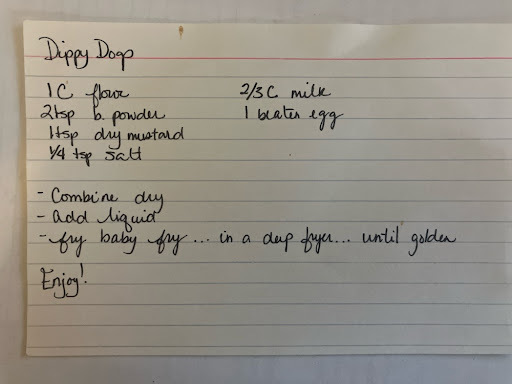 Dippy Dogs
1 C flour
2 tsp b. powder
1 tsp dry mustard
1/4 tsp salt
2/3 C milk
1 beaten egg
- Combine dry
- add liquid
- fry baby fry... in a deep fryer... until golden
Enjoy!